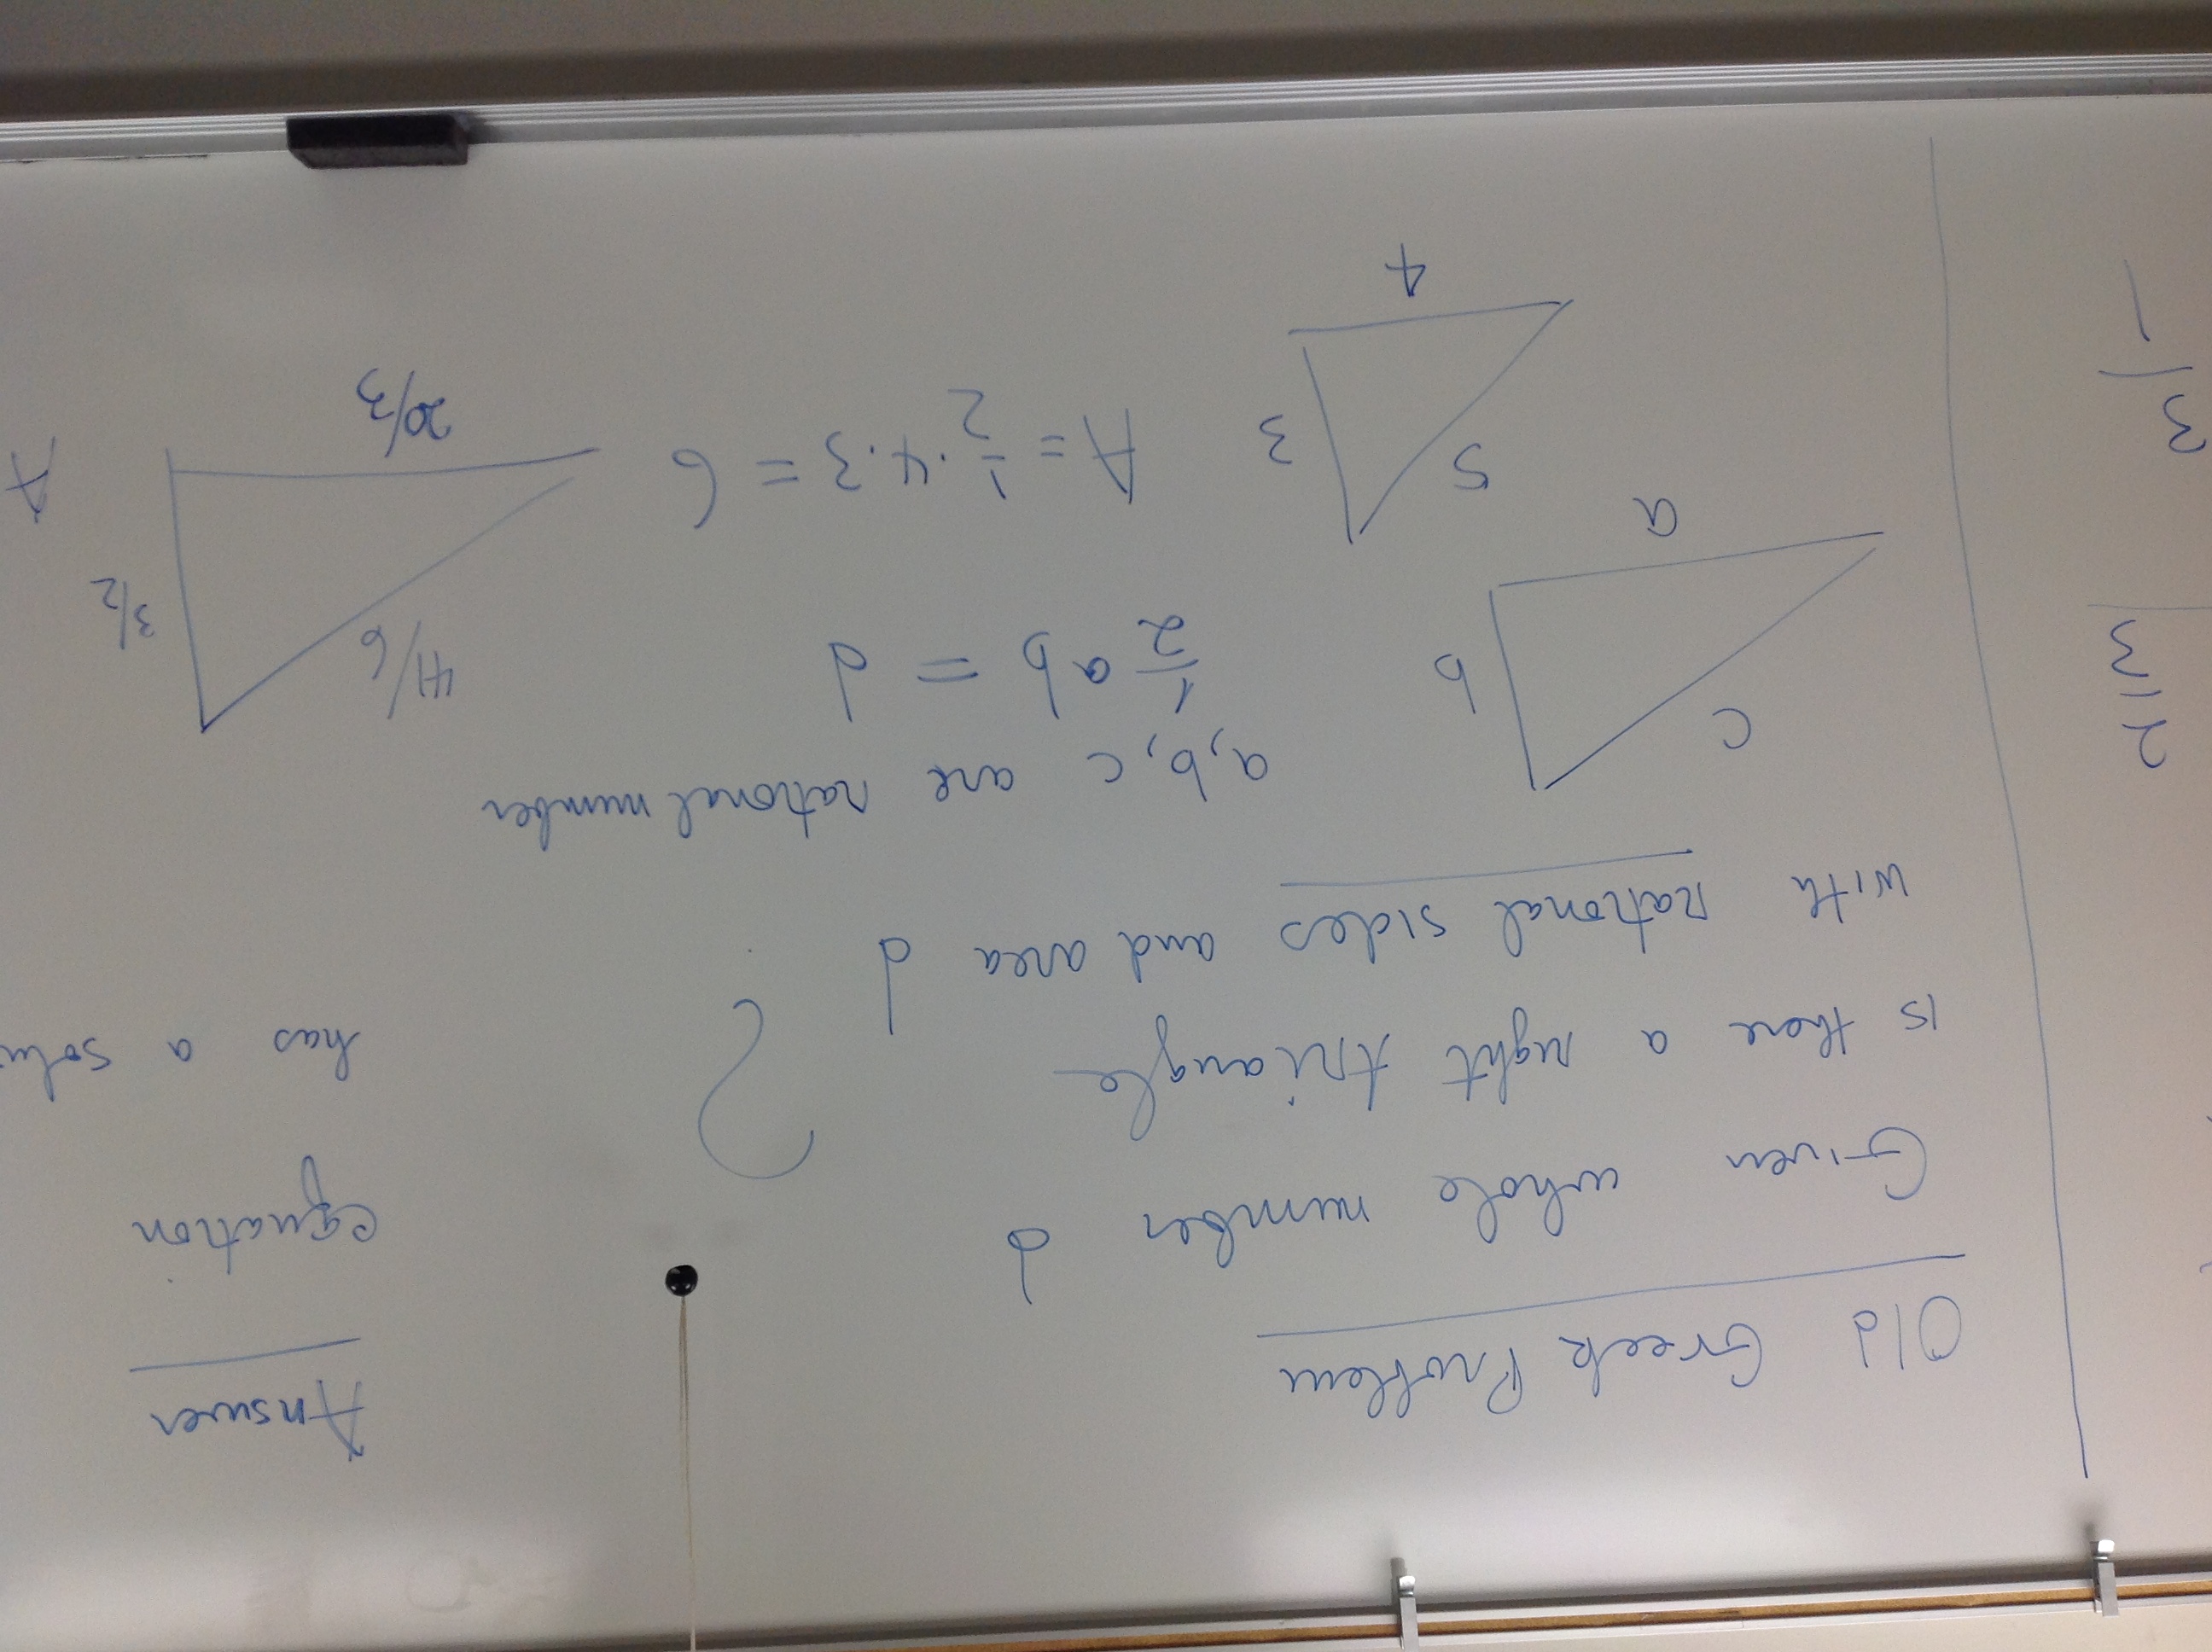 Old Greek Problem
Given whole number d
is there a right triangle
with rational sides and area d
?
a, b, c are rational number
c
b
a
1/2 ab = d
5
3
4
A = 1/2 · 4 · 3 = 6
Answer
equation
has a
41/6
3/2
20/3
A
3
1